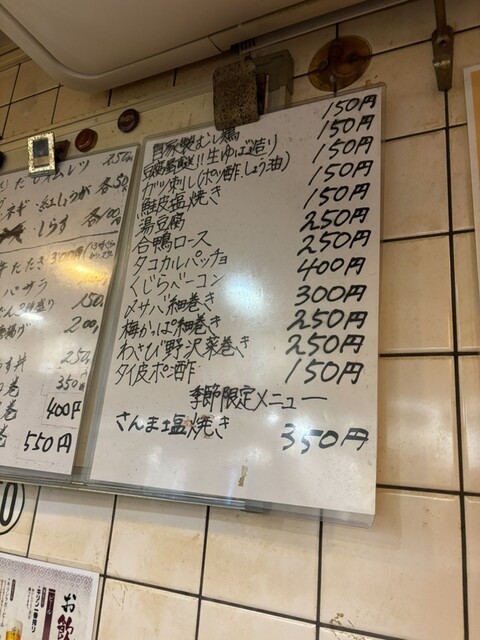 自家製むし鶏 150円
豆腐屋直送!!生ゆば造り 150円
ガツ刺し(ポン酢、しょう油) 150円
鮭皮塩焼き 150円
湯豆腐 150円
合鴨ロース 250円
タコカルパッチョ 250円
くじらベーコン 400円
〆サバ細巻き 300円
梅かっぱ細巻き 250円
わさび野沢菜巻き 250円
タイ皮ポン酢 150円
季節限定メニュー
さんま塩焼き 350円
オムレツ 250
ネギ・紅しょうが 各50
しらす 各100
たたき 300円
パサラ
150
揚げ 200
丼 250
巻 350
巻 400円
巻 550円
お飲
キリン一番搾り